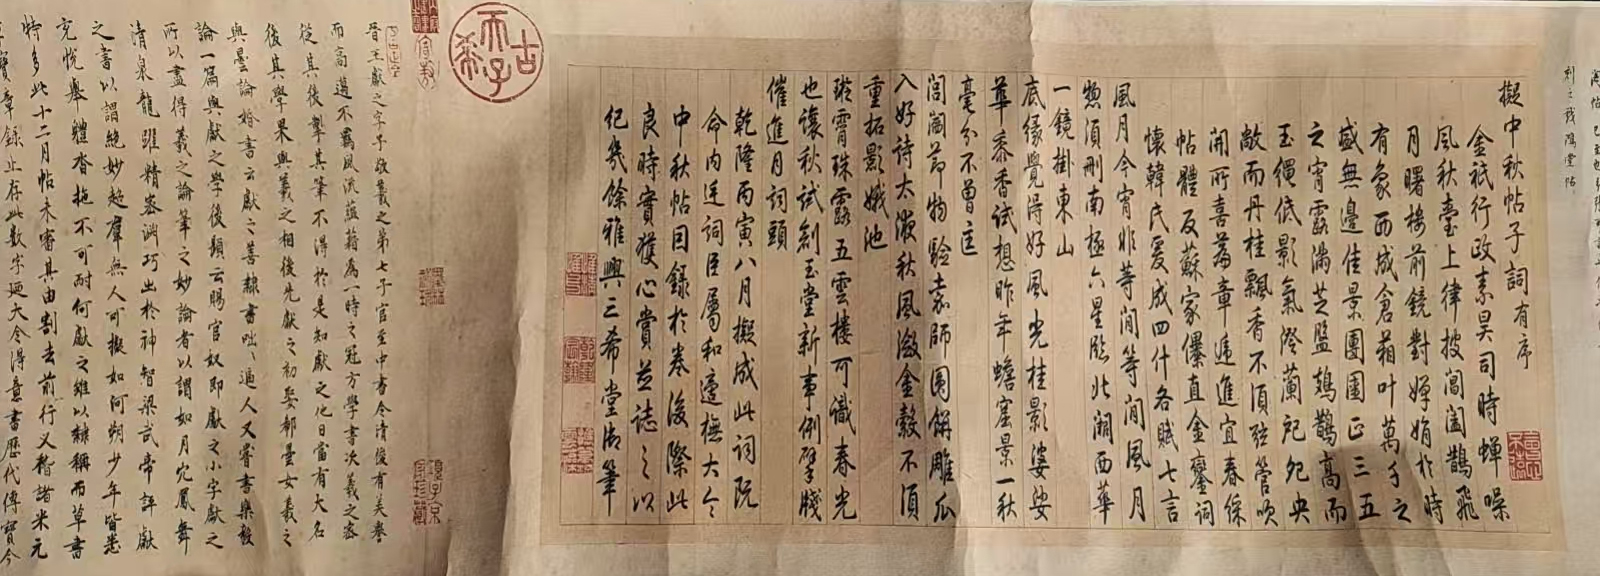 擬中秋帖子詞有序
金祇行政素昊司時蟬噪
風秋臺上律披閶闔鵲飛
月曙樓前鏡對嬋娟於時
有象西成倉箱叶萬千之
盛無邊佳景團圞正三五
之宵露滿芝盤鳷鵲高而
玉繩低影氣澄蘭戺兜央
敞而丹桂飄香不須弦管頌
開所喜篇章遞進宜春綵
帖體反蘇家儤直金鑾詞
懷韓氏爰成四什各賦七言
風月今宵非等閒等閒風月
惣須刪南極六星臨北闕西華
一鏡掛東山
底緣覺得好風光桂影婆娑
華黍香試想昨年蟾窟景一秋
毫分不曾㐌
閶闔節物驗袁師圍餅雕瓜
入好詩太液秋風澂金縠不須
重拓影娥池
璇霄珠露五雲樓可識春光
也讓秋試創玉堂新事例擘牋
催進月詞頭
乾隆丙寅八月擬成此詞既
命內廷詞臣屬和適撫大令
中秋帖因錄於卷後際此
良時實獲心賞並誌之以
紀幾餘雅興三希堂御筆
古
希
天
子
晉王獻之字子敬羲之第七子官至中書令清俊有美譽
而高邁不羈風流蘊藉為一時之冠方學書次羲之密
從其後掣其筆不得於是知獻之他日當有大名
後其學果與羲之相後先獻之初娶郗曇女羲之
與曇論婚書云獻之善隸書咄咄逼人又嘗書樂毅
論一篇與獻之學後題云賜官奴即獻之小字獻之
所以盡得羲之論筆之妙論者以謂如丹穴鳳舞
清泉龍躍精密淵巧出於神智梁武帝評獻
之書以謂絕妙超羣無人可擬如河朔少年皆悉
充悅舉體沓拖不可耐何獻之雖以隸稱而草書
特多此十二月帖未審其由割去前行又稽諸米元
章寶章錄止存此數字迺大令得意書歷代傳寶今